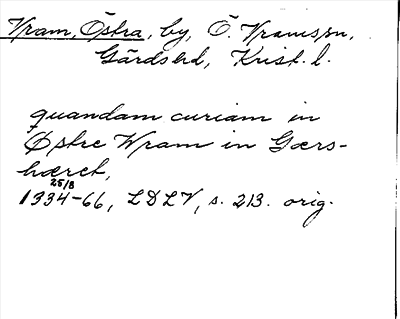 Vram, Östra, by, Ö. Vrams sn,
Gärds hd, Krist. l.
quandam curiam in
Østre Wram in Gærs-
hæret,
25/8
1334-66, LDLV, s. 213. orig.